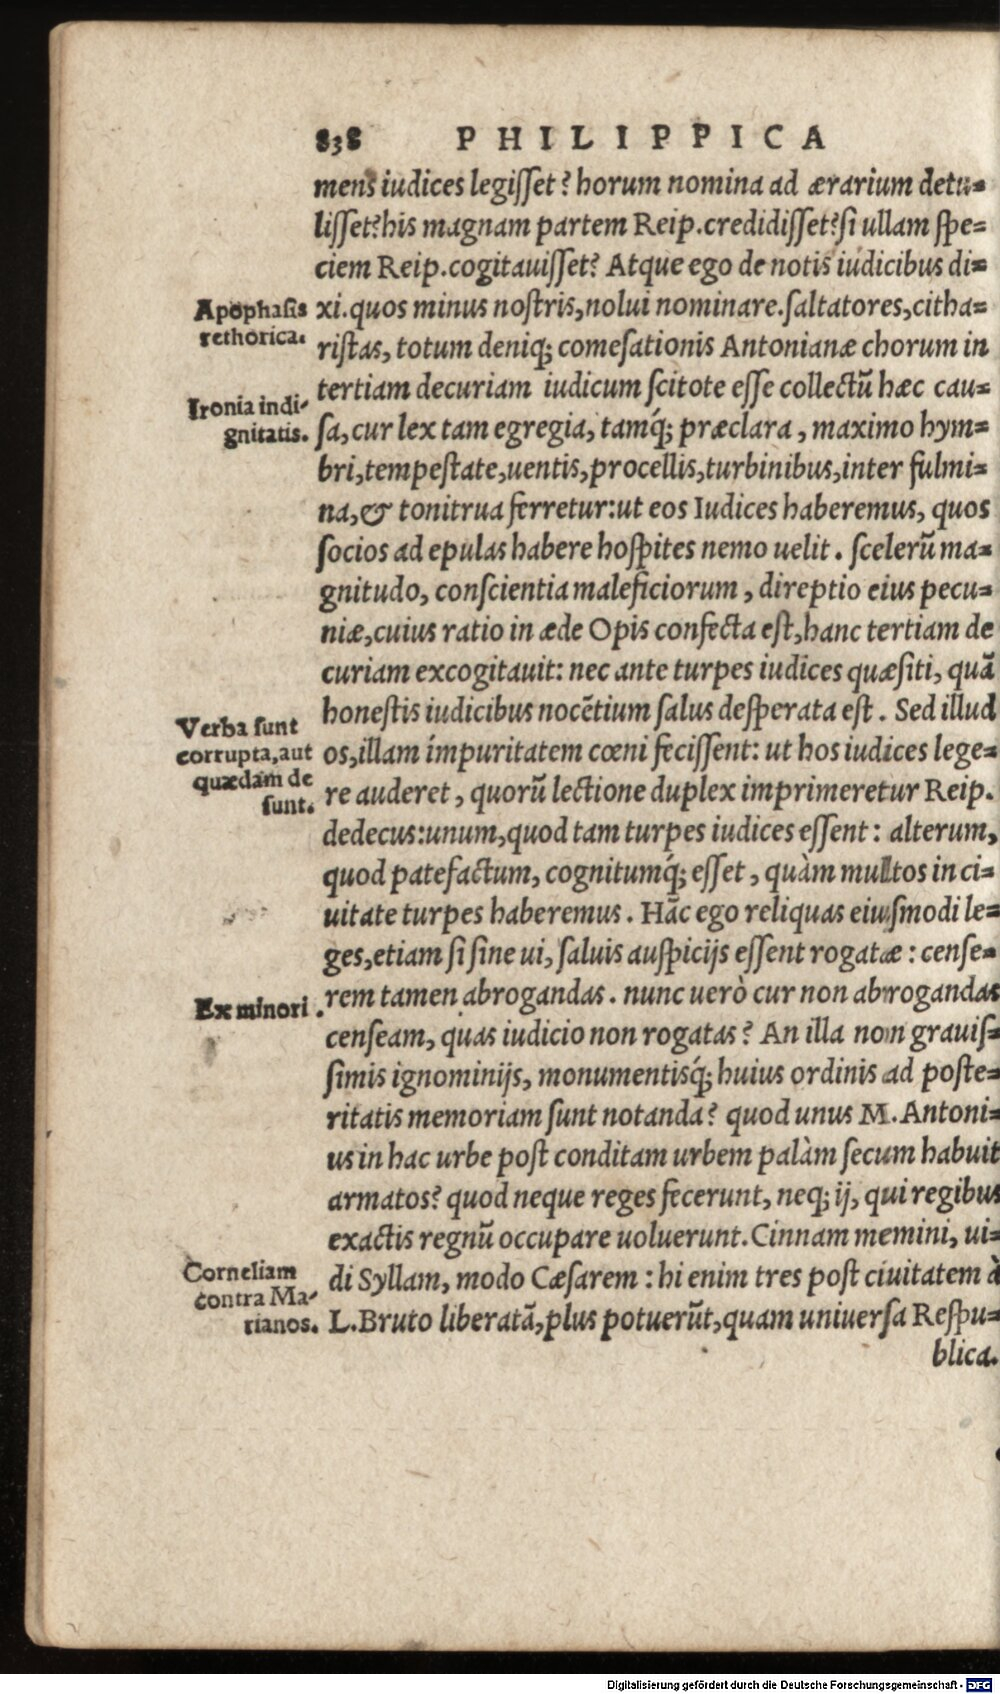 838 PHILIPPICA
mens iudices legisset? horum nomina ad ærarium detu=
lisset? his magnam partem Reip. credidisset? si ullam spe=
ciem Reip. cogitauisset? Atque ego de notis iudicibus di=
xi. quos minus nostris, nolui nominare. saltatores, citha=
Apophasis
rethorica.
ristas, totum deniq; comesationis Antonianæ chorum in
tertiam decuriam iudicum scitote esse collectũ hæc cau=
Ironia indi-
gnitatis.
sa, cur lex tam egregia, tamq́; præclara, maximo hym=
bri, tempestate, uentis, procellis, turbinibus, inter fulmi=
na, & tonitrua ferretur: ut eos Iudices haberemus, quos
socios ad epulas habere hospites nemo uelit. scelerũ ma=
gnitudo, conscientia maleficiorum, direptio eius pecu=
niæ, cuius ratio in æde Opis confecta est, hanc tertiam de
curiam excogitauit: nec ante turpes iudices quæsiti, quã
honestis iudicibus nocẽtium salus desperata est. Sed illud
Verba sunt
corrupta, aut
quædam de
sunt.
os, illam impuritatem cœni fecissent: ut hos iudices lege=
re auderet, quorũ lectione duplex imprimeretur Reip.
dedecus: unum, quod tam turpes iudices essent: alterum,
quod patefactum, cognitumq́; esset, quàm multos in ci=
uitate turpes haberemus. Hãc ego reliquas eiusmodi le=
ges, etiam si sine ui, saluis auspicijs essent rogatæ: cense=
rem tamen abrogandas. nunc uerò cur non abrogandas
Ex minori.
censeam, quas iudicio non rogatas? An illa non grauis=
simis ignominijs, monumentisq́; huius ordinis ad poste=
ritatis memoriam sunt notanda? quod unus M. Antoni=
us in hac urbe post conditam urbem palàm secum habuit
armatos? quod neque reges fecerunt, neq; ij, qui regibus
exactis regnũ occupare uoluerunt. Cinnam memini, ui=
di Syllam, modo Cæsarem: hi enim tres post ciuitatem à
Corneliam
contra Ma-
rianos.
L. Bruto liberatã, plus potuerũt, quam uniuersa Respu=
blica.
Digitalisierung gefördert durch die Deutsche Forschungsgemeinschaft - DFG